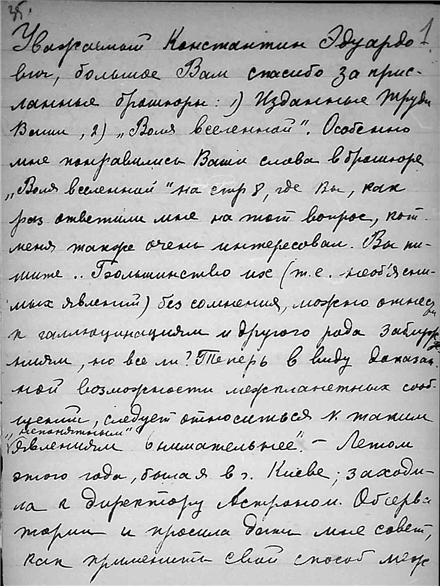 1
Уважаемый Константин Эдуардо-
вич, большое Вам спасибо за прис-
ланные брошюры: 1) Изданные труды
Ваши, 2) „Воля вселенной". Особенно
мне понравились Ваши слова в брошюре
„Воля вселенной" на стр 8, где Вы, как
раз ответили мне на тот вопрос, кот.
меня также очень интересовал. Вы пи-
шите .. Большинство их (т.е. необ'ясни-
мых явлений) без сомнения, можно отнести
к галлюцинациям и другого рода заблуж-
ниям, но все ли? Теперь в виду доказан-
ной возможности межпланетных сооб-
щений, следует относиться к таким
„непонятным"
явлениям внимательнее". – Летом
этого года, была я в г. Киеве; заходи-
ла к директору Астроном. Обсерва-
тории и просила дать мне совет,
как применить свой способ меж